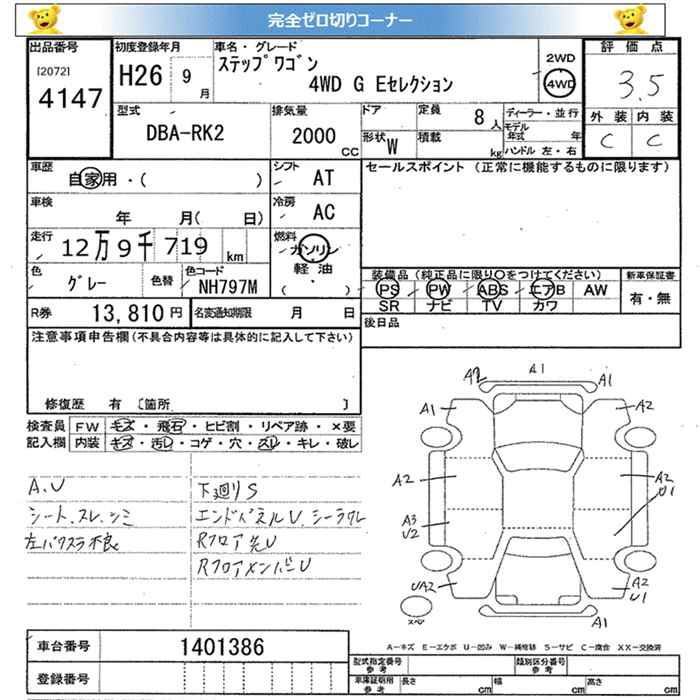 完全ゼロ切りコーナー
出品番号
[2072]
4147
初度登録年月
H26 9 月
車名・グレード
ステップワゴン
4WD G Eセレクション
2WD
4WD
評価点
3.5
外装 内装
C C
型式
DBA-RK2
排気量
2000 CC
ドア
形状 W
定員 8 人
積載 kg
ディーラー・並行
モデル年式 年
ハンドル 左・右
車歴
自家用・( )
シフト
AT
セールスポイント (正常に機能するものに限ります)
車検
年 月( 日)
冷房
AC
走行
12万9千719 km
燃料
ガソリン
軽油
( )
色
グレー
色替
色コード
NH797M
装備品 (純正品に限り○をつけてください)
PS PW ABS エアB AW
SR ナビ TV カワ
新車保証書
有・無
R券 13,810円
名変通知期限 月 日
後日品
注意事項申告欄(不具合内容等は具体的に記入して下さい)
修復歴 有 [箇所 ]
検査員記入欄
FW キズ・飛石・ヒビ割・リペア跡・×要
内装 キズ・汚レ・コゲ・穴・スレ・キレ・破レ
A.U
シート.スレ.シミ
左パワスラ不良
下廻りS
エンドパネルU.シーラワレ
Rフロア先U
RフロアメンバーU
A2 A1 A1
A1 A2
A2 A2 U1
A3 U2
UA2 A2 U1
A1
スペア
A-キズ E-エクボ U-凹み W-補修跡 S-サビ C-腐食 XX-交換済
車台番号 1401386
登録番号
型式指定番号 参考
類別区分番号 参考
車庫証明用 参考
長さ cm 幅 cm 高さ cm